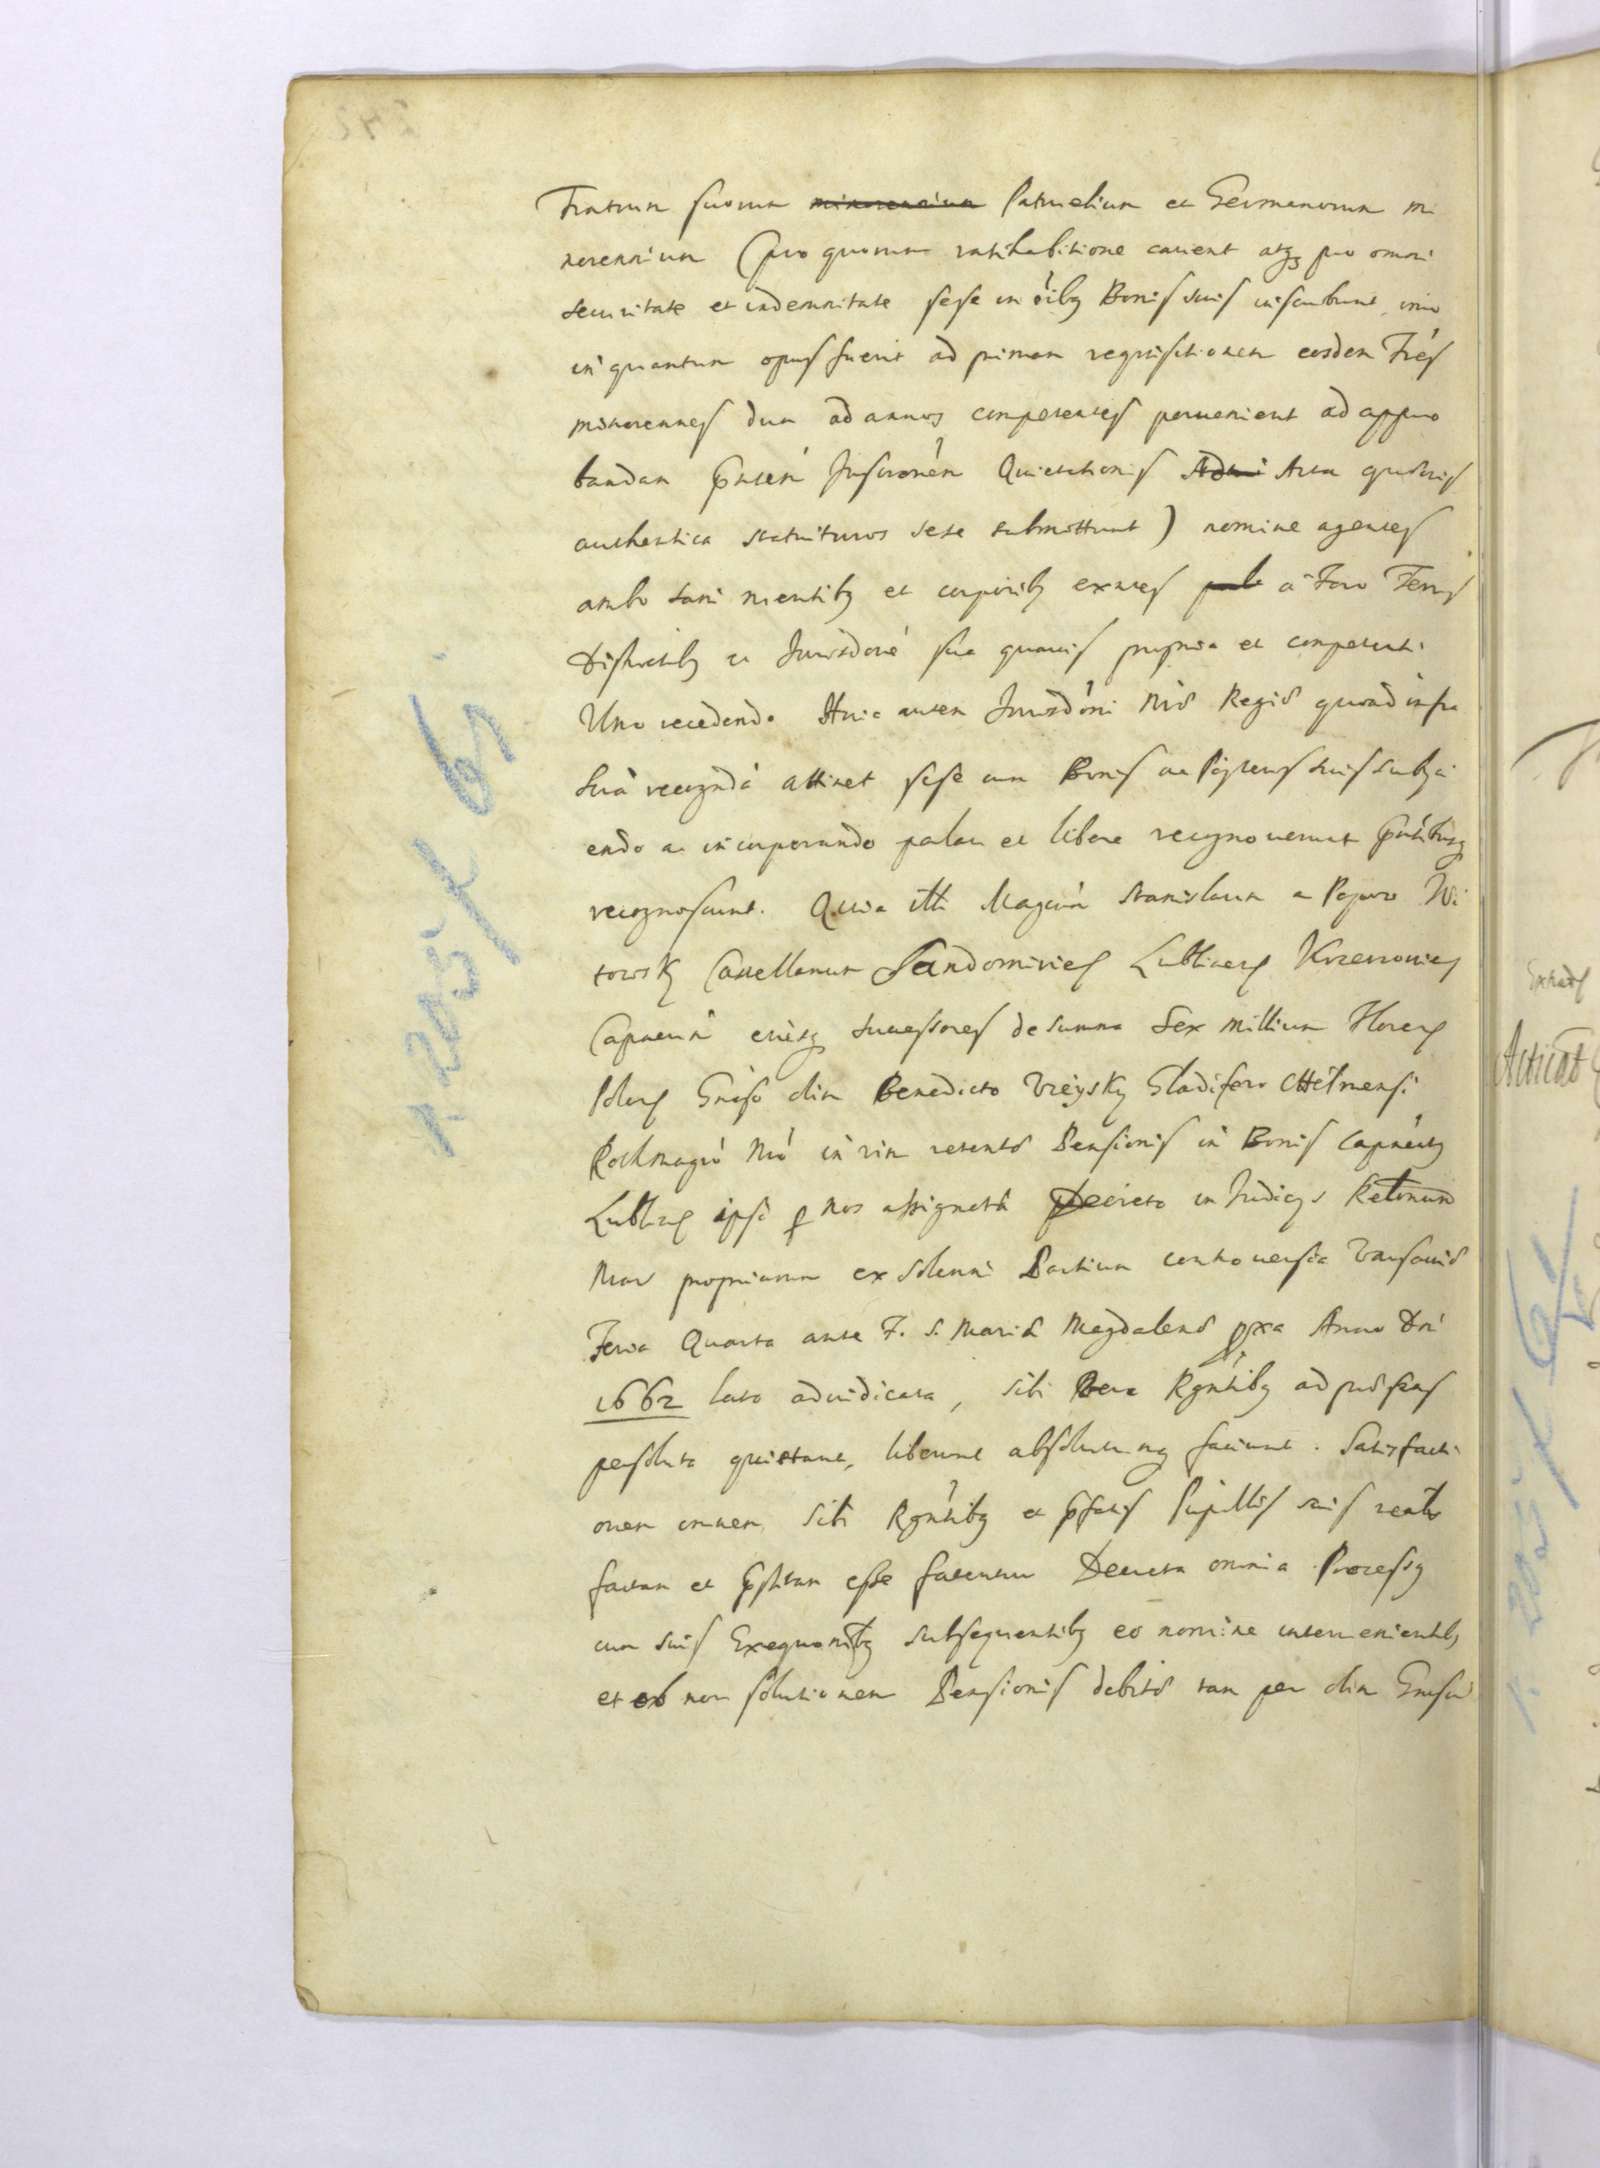 Fratrum suorum minorennium Patruelium et Germanorum mi
norennium (pro quorum ratihabitione cavent atq pro omni
securitate et indemnitate sese in oibq Bonis suis inscribunt, imo
in quantum opus fuerit ad primam requisitionem eosdem Fres
minorennes dum ad annos competentes pervenient ad appro
bandam pntem Inscronem Quietationis Acta quaevis
authentica statuituros sese submittunt) nomine agentes
ambo sani mentibq et corporibq exntes a Foro Terris
Districtibq ac Jurisdone sua quavis propria et competenti
Uno recedendo Huic autem Jurisdoni Nrae Regiae quoad infra
sua recognda attinet sese cum Bonis ac Posteris suis subyci
endo ac incorporando palam et libere recognoverunt pntibusq
recognoscunt. Quia illi Magcum Stanislaum a Popow Wi
towsky Castellanum Sandomirien Lublinen Krzeszowien
Capneum eiusq successores de summa sex millium Floren
Polon Gnoso olim Benedicto Ureysky Gladifero Chelmensi
Rothmagro Nro in vim retentae Pensionis in Bonis Capneatq
Lublinen ipsi p nos assignatae Decreto in Judicys Relonum
Nrar propriarum ex solenni Partium controversia Varsaviae
Feria Quarta ante F. S. Mariae Magdalenae pxa Anno Dni
1662 lato adiudicata, sibi Rgntibq ad praesens
persoluta quietant, liberunt absolutumq faciunt. Satisfacti
onem omnem sibi Rgntibq et pfatis Pupillis suis realr
factam et pstitam esse fatentur Decreta omnia Processq
cum suis Exequonibq subsequentibq eo nomine intervenientibq
et ob non solutionem Pensionis debitae tam per olim Gnosum
1. 205 / 61
Extrad
Acticat
1. 205 / 61